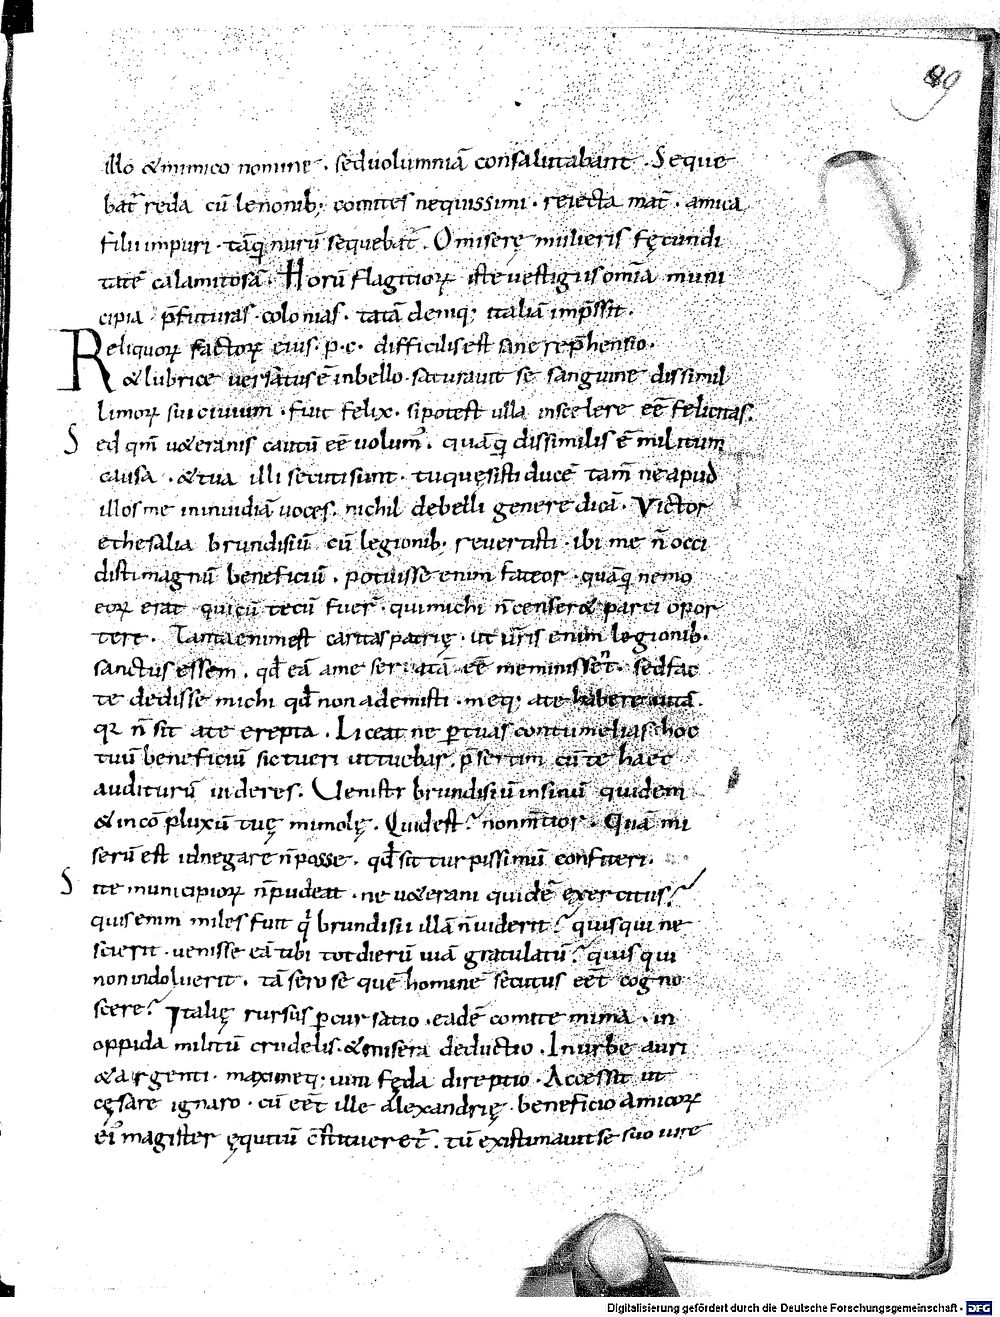 89
illo & mimico nomine · sed uolumniā consalutabant · Seque
bat̄ reda cū lenonib; comites nequissimi · reiecta mat̄ · amicā
filii impuri · tāq̄ nurū sequebat̄ · O miserę mulieris fęcundi
tatē calamitosā · Horū flagitioꝝ iste uestigiis om̄ia muni
cipia p̄fituras colonias · totā deniq; italiā imp̄ssit ·
Reliquoꝝ factoꝝ eius · p · c · difficilis est sane rep̄hensio ·
& lubrice uersatus ē in bello · saturauit se sanguine dissimil
limoꝝ sui ciuium · fuit felix · si potest ulla in scelere eē felicitas ·
Sed qm̄ u&eranis cautū eē uolum᷒ · quāq̄ dissimilis ē militum
causa · & tua illi secuti sunt · tu quęsisti ducē tam̄ ne apud
illos me in inuidiā uoces · nichil de belli genere dicā · Victor
e thesalia brundisiū cū legionib · reuertisti · ibi me n̄ occi
disti magnū beneficiū · potuisse enim fateor · quāq̄ nemo
eoꝝ erat qui cū tecū fuer̄ · qui michi n̄ censer& parci opor
tere · Tanta enim est caritas patrię · ut ur̄is enim legionib ·
sanctus essem · qđ eā a me seruatā eē meminisset · sed fac
te dedisse michi qđ non ademisti · meq; a te habere uitā ·
qꝛ n̄ sit a te erepta · Liceat ne ꝑ tuas contumelias hoc
tuū beneficiū sic tueri ut tuebar · p̄sertim cū te haec
auditurū uideres · Uenisti brundisiū in sinū quidem
& in cōpluxū tuę mimolę · Quid est? non mentior · Quā mi
serū est id negare n̄ posse · qđ sit turpissimū confiteri ·
Si te municipioꝝ n̄ pudeat · ne u&erani quidē exercitus?
quis enim miles fuit q̇ brundisii illā n̄ uiderit? quis qui ne
scierit · uenisse eā tibi tot dierū uiā gratulatū? quis qui
non indoluerit · tā sero se quē hominē secutus eēt cogno
scere? Italię rursus ꝑcursatio · eadē comite mima · in
oppida militū crudelis & misera deductio · In urbe auri
& argenti · maximeq; uini fęda direptio · Accessit ut
cęsare ignaro · cū eēt ille alexandrię · beneficio amicoꝝ
ei᷒ magister equitū c̄stitueret̄ · tū existimauit se suo iure
Digitalisierung gefördert durch die Deutsche Forschungsgemeinschaft · DFG